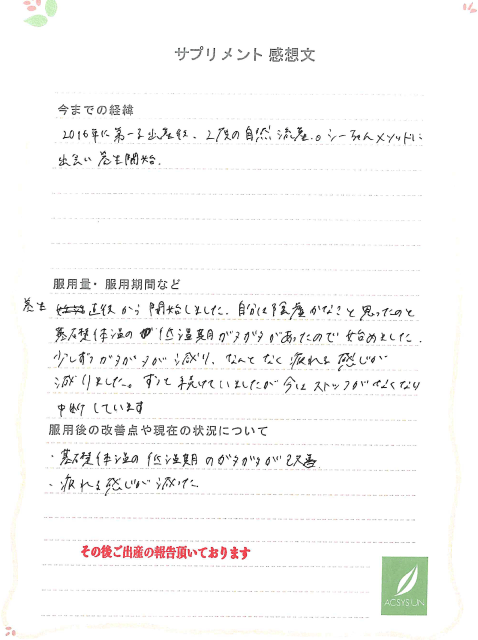 サプリメント 感想文
今までの経緯
2016年に第一子出産後、2度の自然流産。シーちゃんメソッドに
出会い養生開始。
服用量・服用期間など
養生 直後から開始しました。自分は陰虚かなと思ったのと
基礎体温の低温期がガタガタがあったので始めました。
少しずつガタガタが減り、なんとなく疲れる感じが
減りました。ずっと続けていましたが今はストックがなくなり
中断しています
服用後の改善点や現在の状況について
・基礎体温の低温期のガタガタが改善
・疲れる感じが減った
その後ご出産の報告頂いております
ACSYSUN